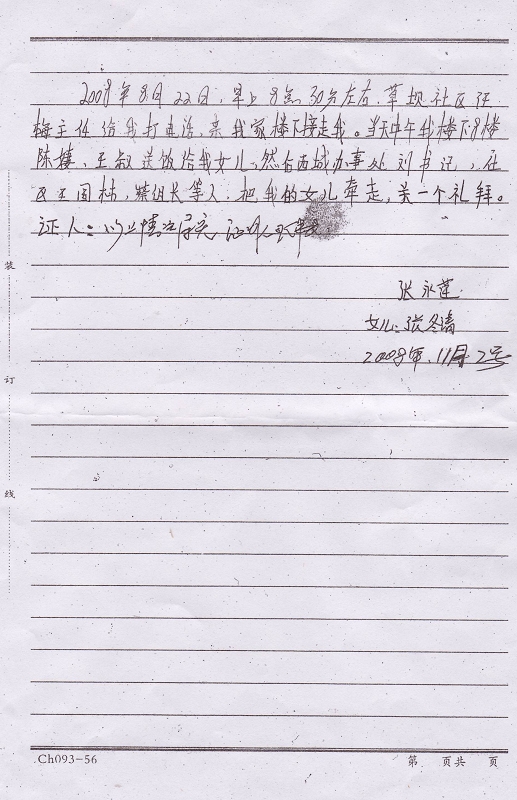 2008年8月22日，早上8点30分左右，草坝社区任
梅主任给我打电话，来我家楼下接走我。当天中午我楼下8楼
陈接、王叔送饭给我女儿，然后西城办事处刘书记，社
区王国栋，蔡组长等人，把我的女儿牵走，关一个礼拜。
证人：以上情况属实，证明人
张永莲
女儿：张冬清
2008年.11月2号
装
订
线
Ch093-56
第 页共 页